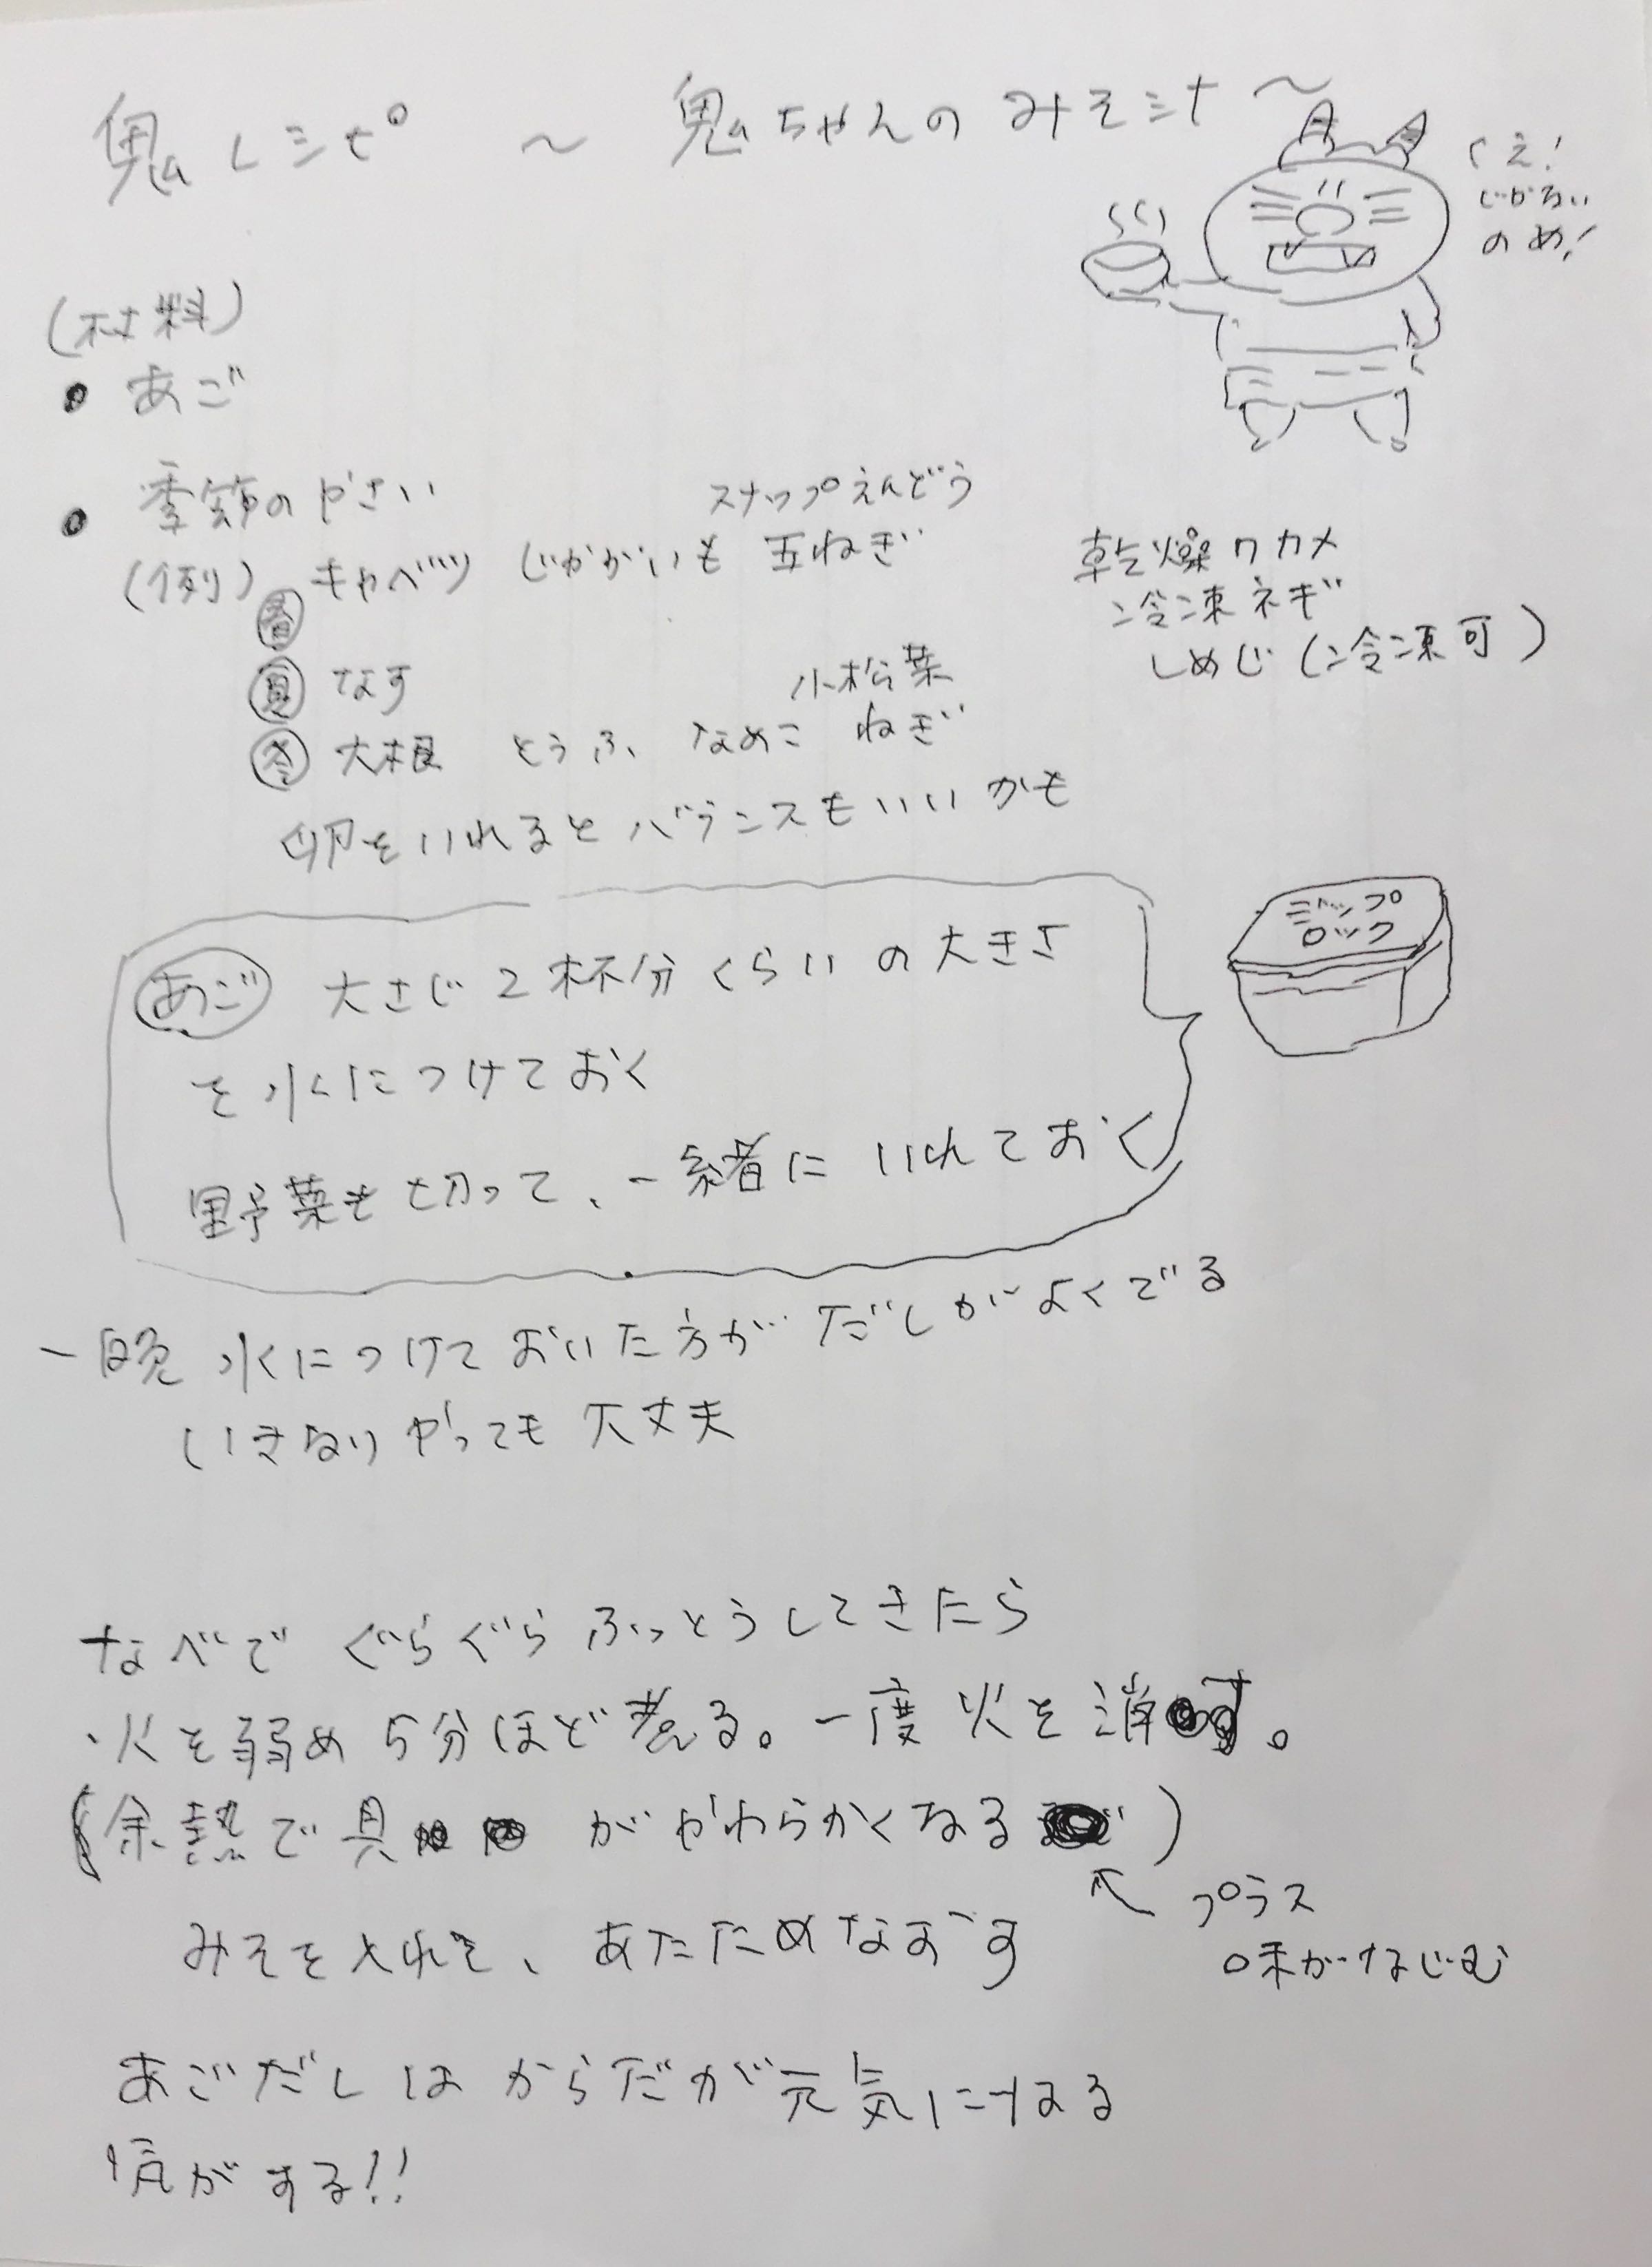 鬼レシピ ～鬼ちゃんのみそ汁～
くえ!
じかろい
のめ!
(材料)
• あご
• 季節のやさい
(例)
春 キャベツ じゃがいも 玉ねぎ スナップえんどう
夏 なす
冬 大根 とうふ なめこ ねぎ 小松菜
乾燥ワカメ
冷凍ネギ
しめじ(冷凍可)
卵をいれるとバランスもいいかも
あご 大さじ2杯分くらいの大きさ
を水につけておく
野菜も切って、一緒にいれておく
ジップ
ロック
一晩水につけておいた方がだしがよくでる
いきなりやっても大丈夫
なべでぐらぐらふっとうしてきたら
火を弱め5分ほど煮る。一度火を消す。
(余熱で具がやわらかくなる)
↖ プラス
味がなじむ
みそをとれて、あたためなおす
あごだしはからだが元気になる
気がする!!